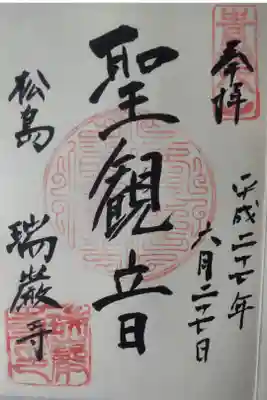 奉拝
平成二十七年
六月二十七日
聖観音
松島 瑞巌寺